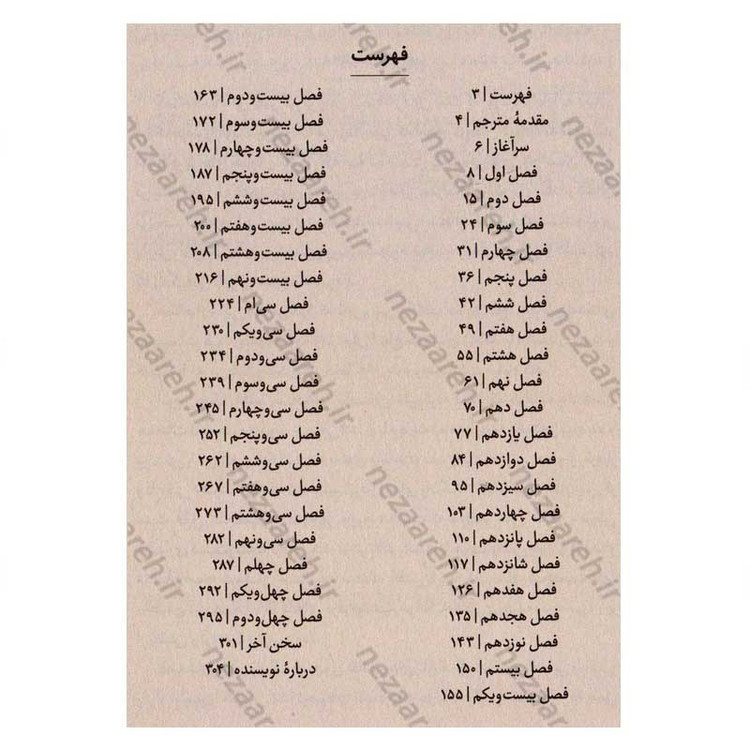 فهرست
فهرست | ۳
مقدمهٔ مترجم | ۴
سرآغاز | ۶
فصل اول | ۸
فصل دوم | ۱۵
فصل سوم | ۲۴
فصل چهارم | ۳۱
فصل پنجم | ۳۶
فصل ششم | ۴۲
فصل هفتم | ۴۹
فصل هشتم | ۵۵
فصل نهم | ۶۱
فصل دهم | ۷۰
فصل یازدهم | ۷۷
فصل دوازدهم | ۸۴
فصل سیزدهم | ۹۵
فصل چهاردهم | ۱۰۳
فصل پانزدهم | ۱۱۰
فصل شانزدهم | ۱۱۷
فصل هفدهم | ۱۲۶
فصل هجدهم | ۱۳۵
فصل نوزدهم | ۱۴۳
فصل بیستم | ۱۵۰
فصل بیست‌ویکم | ۱۵۵
فصل بیست‌ودوم | ۱۶۳
فصل بیست‌وسوم | ۱۷۲
فصل بیست‌وچهارم | ۱۷۸
فصل بیست‌وپنجم | ۱۸۷
فصل بیست‌وششم | ۱۹۵
فصل بیست‌وهفتم | ۲۰۰
فصل بیست‌وهشتم | ۲۰۸
فصل بیست‌ونهم | ۲۱۶
فصل سی‌ام | ۲۲۴
فصل سی‌ویکم | ۲۳۰
فصل سی‌ودوم | ۲۳۴
فصل سی‌وسوم | ۲۳۹
فصل سی‌وچهارم | ۲۴۵
فصل سی‌وپنجم | ۲۵۲
فصل سی‌وششم | ۲۶۲
فصل سی‌وهفتم | ۲۶۷
فصل سی‌وهشتم | ۲۷۳
فصل سی‌ونهم | ۲۸۲
فصل چهلم | ۲۸۷
فصل چهل‌ویکم | ۲۹۲
فصل چهل‌ودوم | ۲۹۵
سخن آخر | ۳۰۱
دربارهٔ نویسنده | ۳۰۴
nezaareh.ir